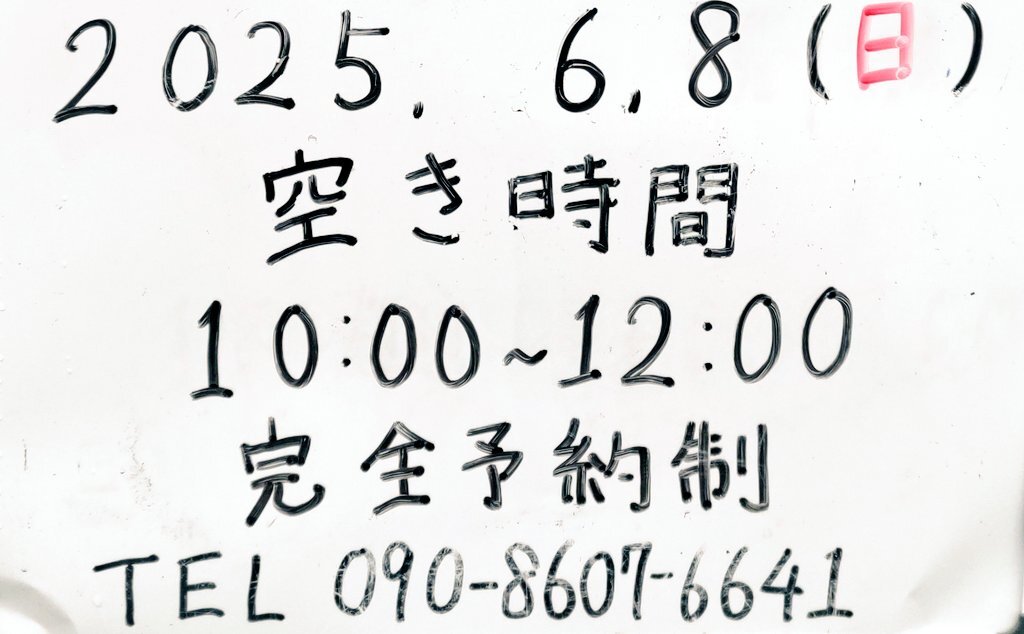 2025. 6.8(日)
空き時間
10:00~12:00
完全予約制
TEL 090-8607-6641